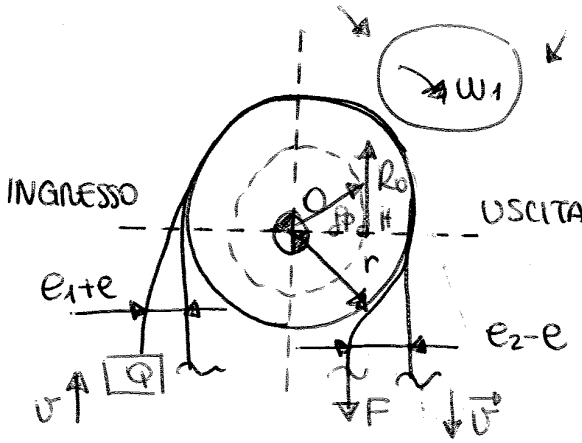 ω1
INGRESSO
O
R0
USCITA
H
r
e1+e
e2-e
Q
v
F
v